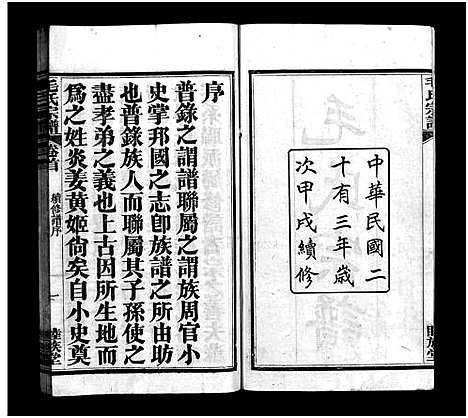 毛氏宗譜
中華民國二
十有三年歲
次甲戌續修
睦族堂
序
普錄之謂譜聯屬之謂族周官小
史掌邦國之志卽族譜之所由助
也普錄族人而聯屬其子孫使之
盡孝弟之義也上古因所生地而
為之姓炎姜黃姬尙矣自小史奠
毛氏宗譜
卷首
續修譜序
一
睦族堂